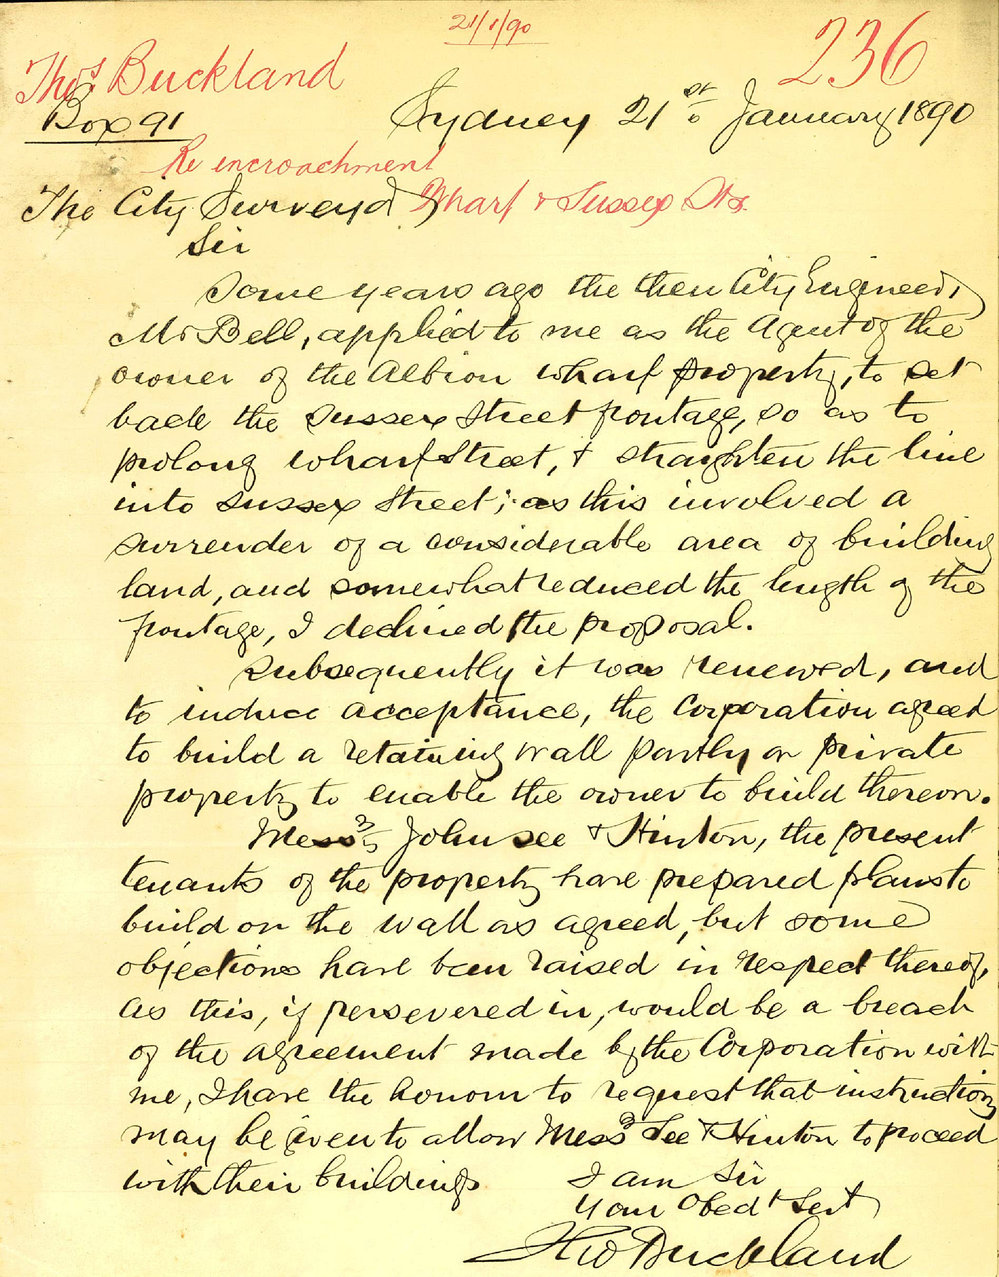 21/1/90
236
Thos Buckland
Box 91
Sydney 21st January 1890
Re encroachment
Wharf & Sussex Sts.
The City Surveyor
Sir
Some years ago the then City Engineer,
Mr Bell, applied to me as the Agent of the
owner of the Albion Wharf property, to set
back the Sussex Street frontage, so as to
prolong Wharf Street, & straighten the line
into Sussex Street; as this involved a
surrender of a considerable area of building
land, and somewhat reduced the length of the
frontage, I declined the proposal.
Subsequently it was renewed, and
to induce acceptance, the Corporation agreed
to build a retaining wall partly on private
property to enable the owner to build thereon.
Messrs John See & Hinton, the present
tenants of the property have prepared plans to
build on the wall as agreed, but some
objections have been raised in respect thereof,
as this, if persevered in, would be a breach
of the agreement made by the Corporation with
me, I have the honour to request that instructions
may be given to allow Messrs See & Hinton to proceed
with their buildings
I am Sir
Your Obedt Servt
Thos Buckland